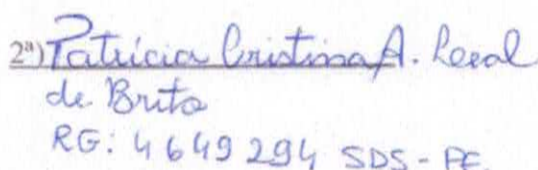 2ª) Patrícia Cristina A. Leal
de Brito
RG: 4649294 SDS - PE.